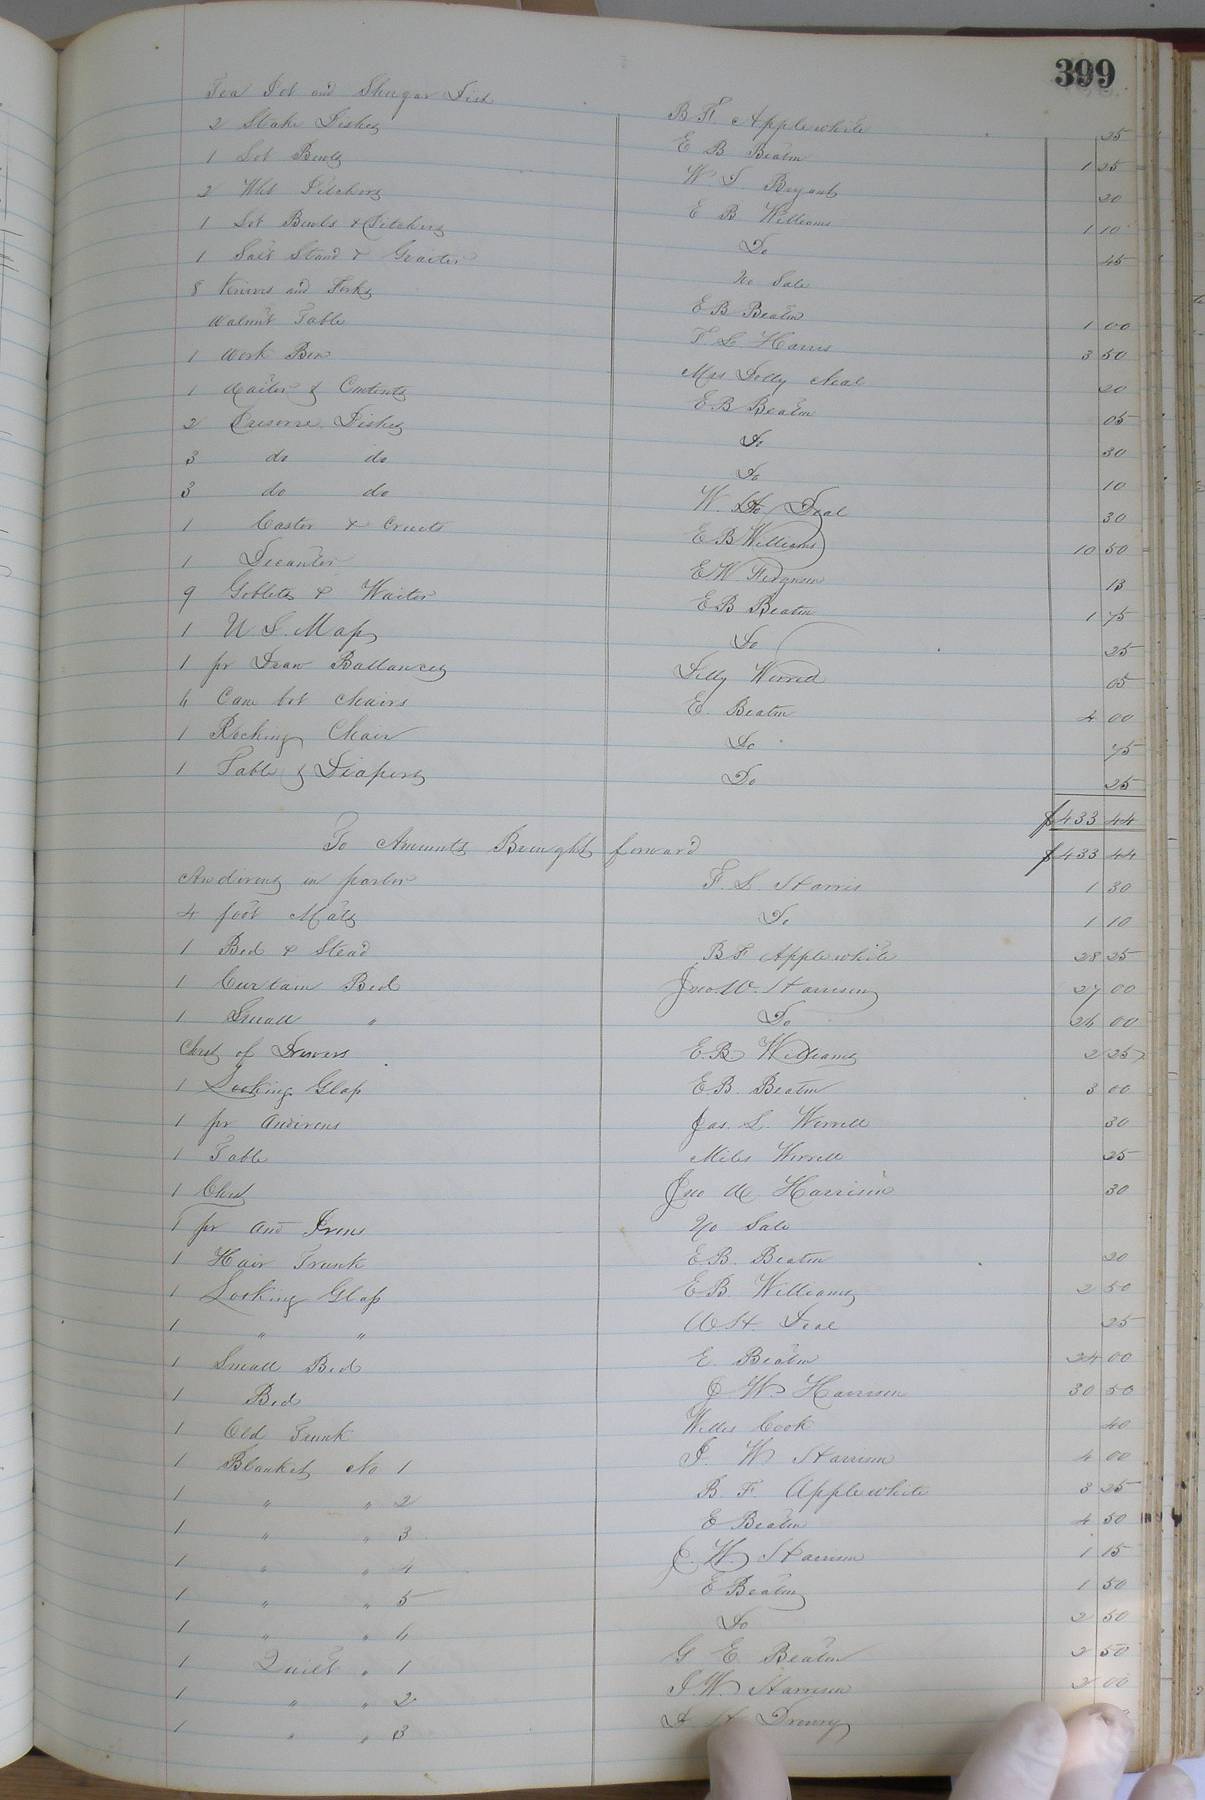 399
Tea Pot and Shugar Dish B F Applewhite 25
2 Stake Dishes E B Beaton 1 25
1 Lot Bowls W. S. Bryant 20
2 Wht Pitchers E B Williams 1 10
1 Lot Bowls & Pitchers Do 45
1 Salt Stand & Grater No Sale
8 Knives and Forks E B Beaton 1 00
Walnut Table F L Harris 3 50
1 Work Box Mrs Dolly Neal 20
1 Waiter & Contents E B Beaton 05
2 Preserve Dishes Do 30
3 do do Do 10
3 do do W. H. Deal 30
1 Castor & Cruets E B Williams 10 50
1 Decanter E W Ferguson 13
9 Goblets & Waiter E B Beaton 1 75
1 U S. Map Do 25
1 pr Draw Ballances Worrell 05
6 Cane bot Chairs E. Beaton 4 00
1 Rocking Chair Do 75
1 Table & Diapers Do 25
$433 44
To Amounts Brought forward $433 44
Andirons in parlor F. L. Harris 1 30
4 foot Mats Do 1 10
1 Bed & Stead B F Applewhite 28 25
1 Curtain Bed Jno. W. Harrison 27 00
1 Small " Do 26 00
Chest of Drawers E. B Williams 2 25
1 Looking Glass E B. Beaton 3 00
1 pr Andirons Jas. L. Worrell 30
1 Table Miles Worrell 25
1 Chest Jno W Harrison 30
1 pr And Irons No Sale
1 Hair Trunk E B. Beaton 20
1 Looking Glass E B. Williams 2 50
1 " " W H. Deal 25
1 Small Bed E. Beaton 24 00
1 Bed J W. Harrison 30 50
1 Old Trunk Willis Cook 40
1 Blanket No 1 J. W Harrison 4 00
1 " " 2 B. F. Applewhite 3 25
1 " " 3 E Beaton 4 50
1 " " 4 J. W. Harrison 1 15
1 " " 5 E Beaton 1 50
1 " " 6 Do 2 50
1 Quilt " 1 G E Beaton 2 50
1 " " 2 J. W. Harrison 2 00
1 " " 3 Drewry